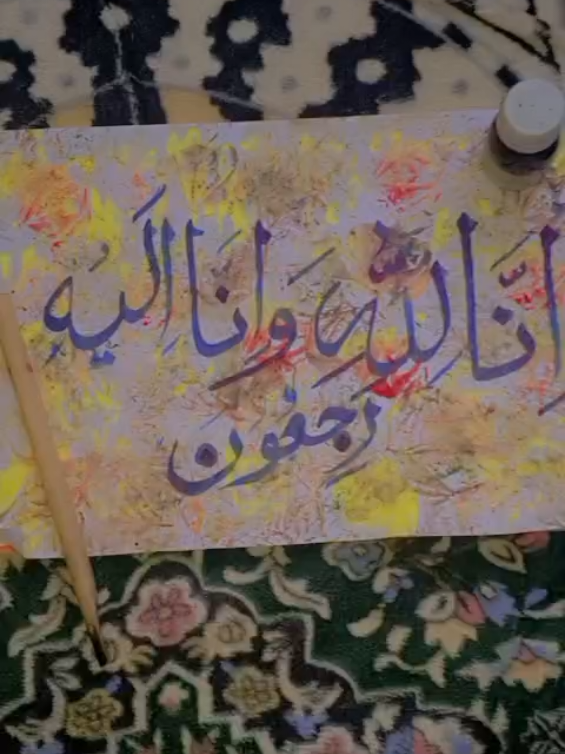 انّا للّٰه وانّا اليه
رجعون